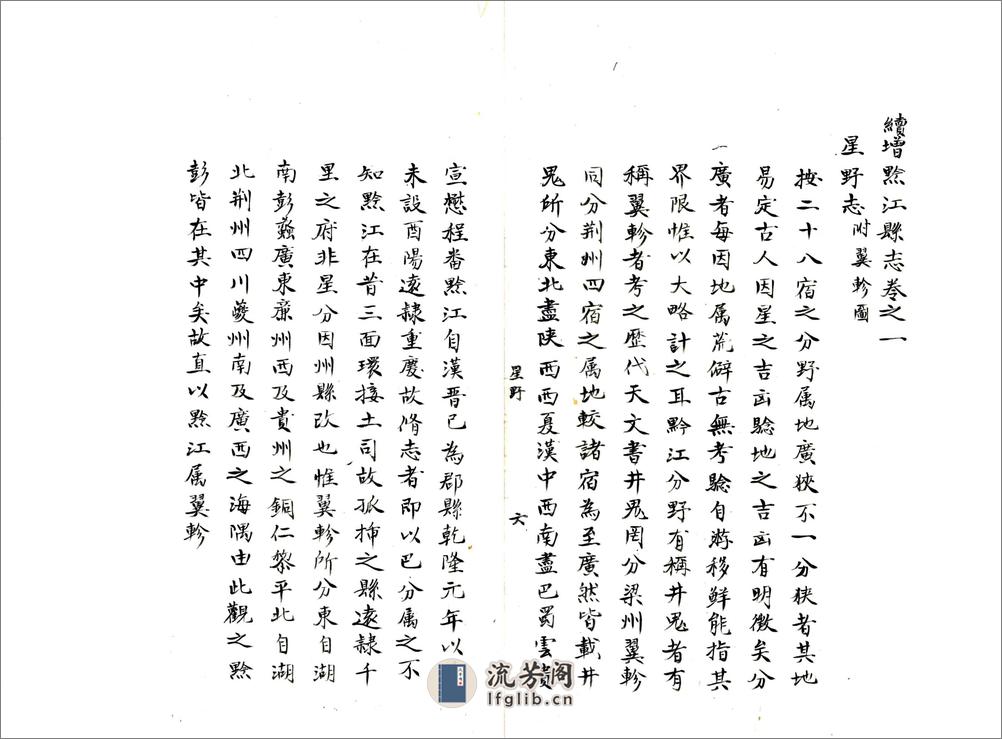 續增黔江縣志卷之一
星野志 附翼軫圖
按二十八宿之分野属地廣狹不一分狹者其地
易定古人因星之吉凶驗地之吉凶有明徵矣分
廣者每因地属荒僻古無考驗自游移鮮能指其
界限惟以大略計之耳黔江分野有稱井鬼者有
稱翼軫者考之歷代天文書井鬼同分梁州翼軫
同分荆州四宿之属地較諸宿為至廣然皆載井
鬼所分東北盡陕西西夏漢中西南盡巴蜀雲貴
星野
六
宣懋程畨黔江自漢晋已為郡縣乾隆元年以
未設酉陽遠隸重慶故脩志者即以巴分属之不
知黔江在昔三面環接土司故孤揷之縣遠隸千
里之府非星分因州縣改也惟翼軫所分東自湖
南彭蠡廣東亷州西及貴州之銅仁黎平北自湖
北荆州四川夔州南及廣西之海隅由此觀之黔
彭皆在其中矣故直以黔江属翼軫
流芳阁
lfglib.cn